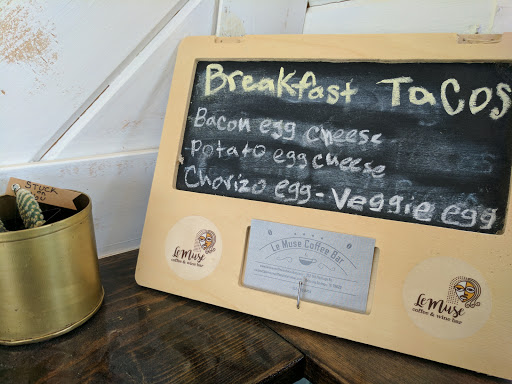 Breakfast Tacos
Bacon egg cheese
Potato egg cheese
Chorizo egg - Veggie egg
STUCK
on
Le Muse
coffee & wine bar
Le Muse Coffee Bar
Le Muse
coffee & wine bar